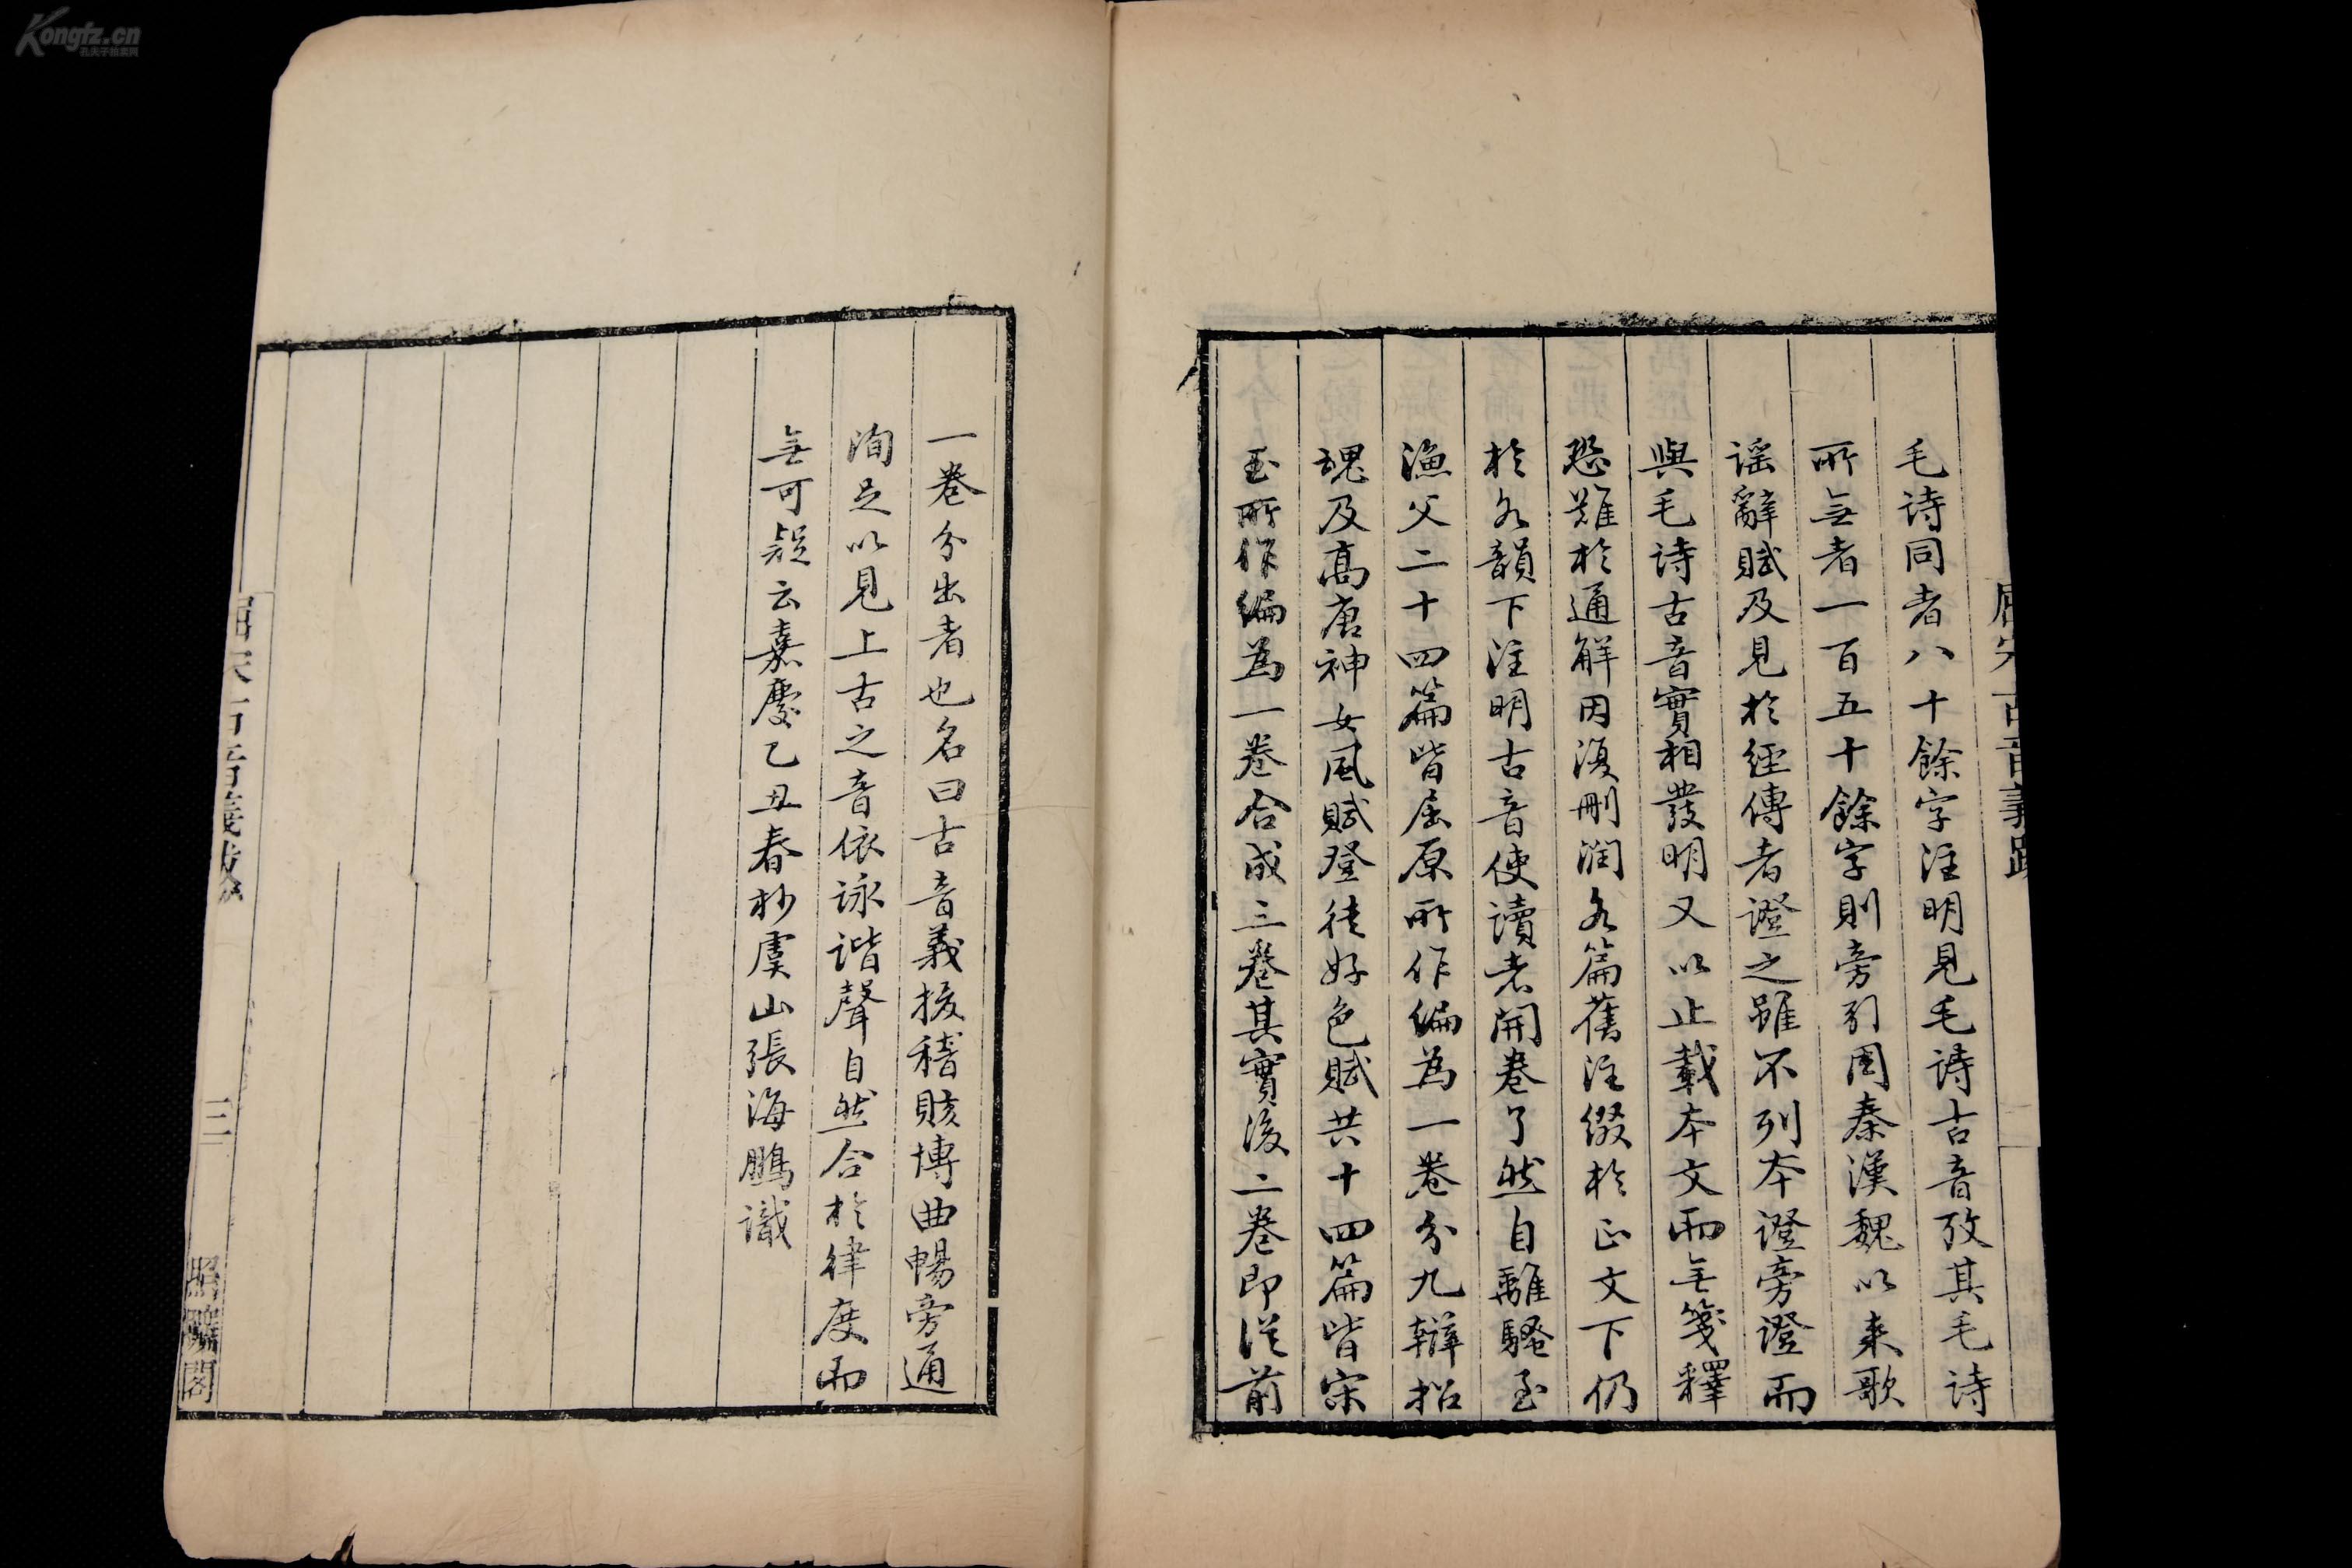 毛詩同者八十餘字注明見毛詩古音攷其毛詩
所無者一百五十餘字則旁引周秦漢魏以来歌
謡辭賦及見於經傳者證之雖不列本證旁證而
與毛詩古音實相發明又以止載本文而無箋釋
恐難於通解因復刪潤各篇舊注綴於正文下仍
於各韻下注明古音使讀者開卷了然自離騷至
漁父二十四篇皆屈原所作編為一卷分九辯招
魂及高唐神女風賦登徒好色賦共十四篇皆宋
玉所作編為一卷合成三卷其實後二卷即從前
一卷分出者也名曰古音義援稽賅博曲暢旁通
洵足以見上古之音依詠谐聲自然合於律度而
無可疑云嘉慶乙丑春杪虞山張海鵬識
三
照曠閣
Kongfz.cn